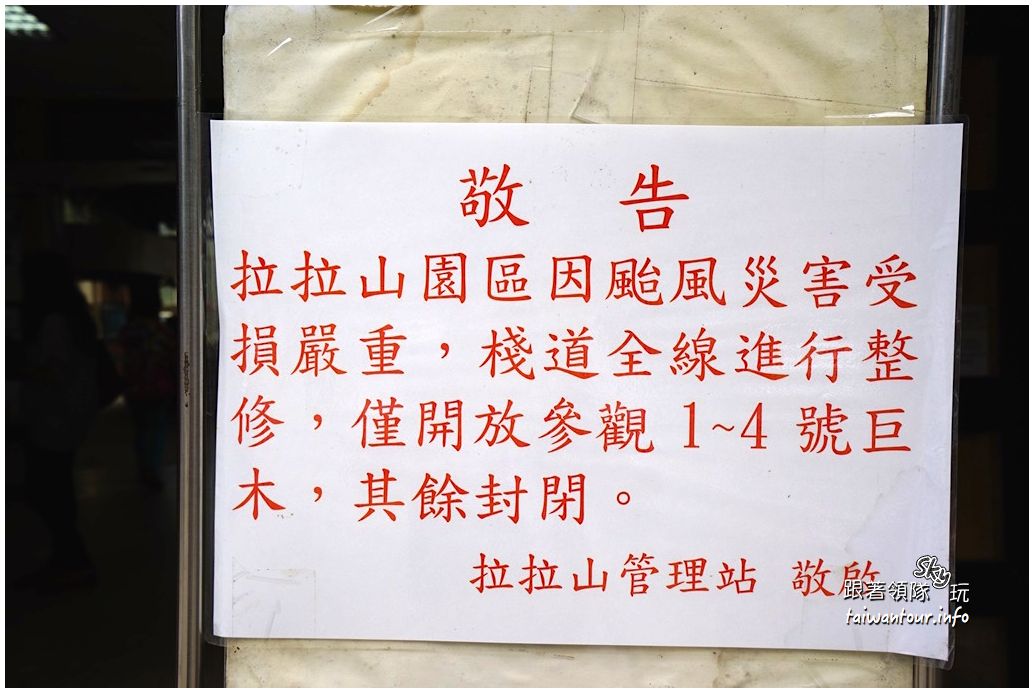 敬 告
拉拉山園區因颱風災害受
損嚴重，棧道全線進行整
修，僅開放參觀 1~4 號巨
木，其餘封閉。
拉拉山管理站 敬啟
跟著領隊Sky玩
taiwantour.info